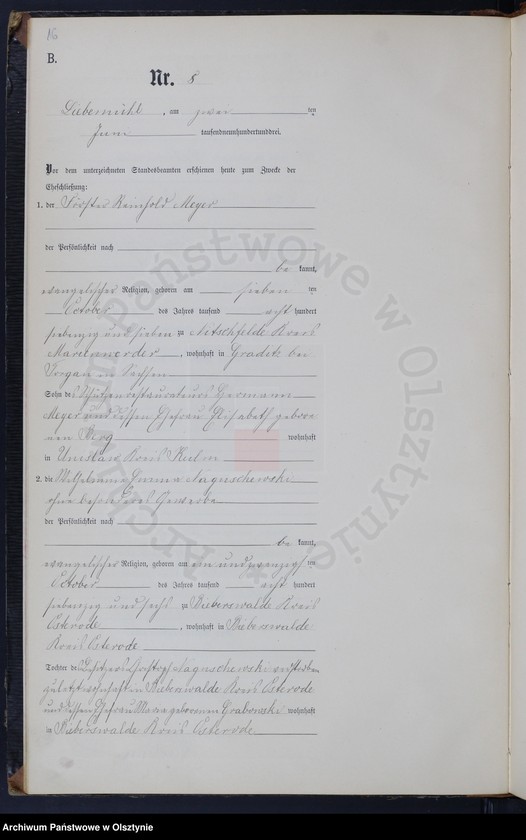 16
B.
Nr. 8
Liebemühl, am zwei ten
Juni tausendneunhundertunddrei.
Vor dem unterzeichneten Standesbeamten erschienen heute zum Zwecke der
Eheschließung:
1. der Förster Reinhold Meyer
der Persönlichkeit nach
be kannt,
evangelischer Religion, geboren am sieben ten
October des Jahres tausend acht hundert
siebenzig und sieben zu Kreis
Marienwerder, wohnhaft in Graditz bei
Torgau in Sachsen
Sohn des Hermann
Meyer und dessen Ehefrau Elisabeth gebore
nen Berg wohnhaft
in Unislaw Kreis Kulm
2. die Wilhelmine Emma Naguschewski
ohne besonderes Gewerbe
der Persönlichkeit nach
be kannt,
evangelischer Religion, geboren am ein und zwanzig ten
October des Jahres tausend acht hundert
siebenzig und sechs zu Bieberswalde Kreis
Osterode, wohnhaft in Bieberswalde
Kreis Osterode
Tochter des Naguschewski verstorben
zuletzt wohnhaft in Bieberswalde Kreis Osterode
und dessen Ehefrau Maria geborenen Grabowski wohnhaft
in Bieberswalde Kreis Osterode
Archiwum Państwowe w Olsztynie
Archiwum Państwowe w Olsztynie